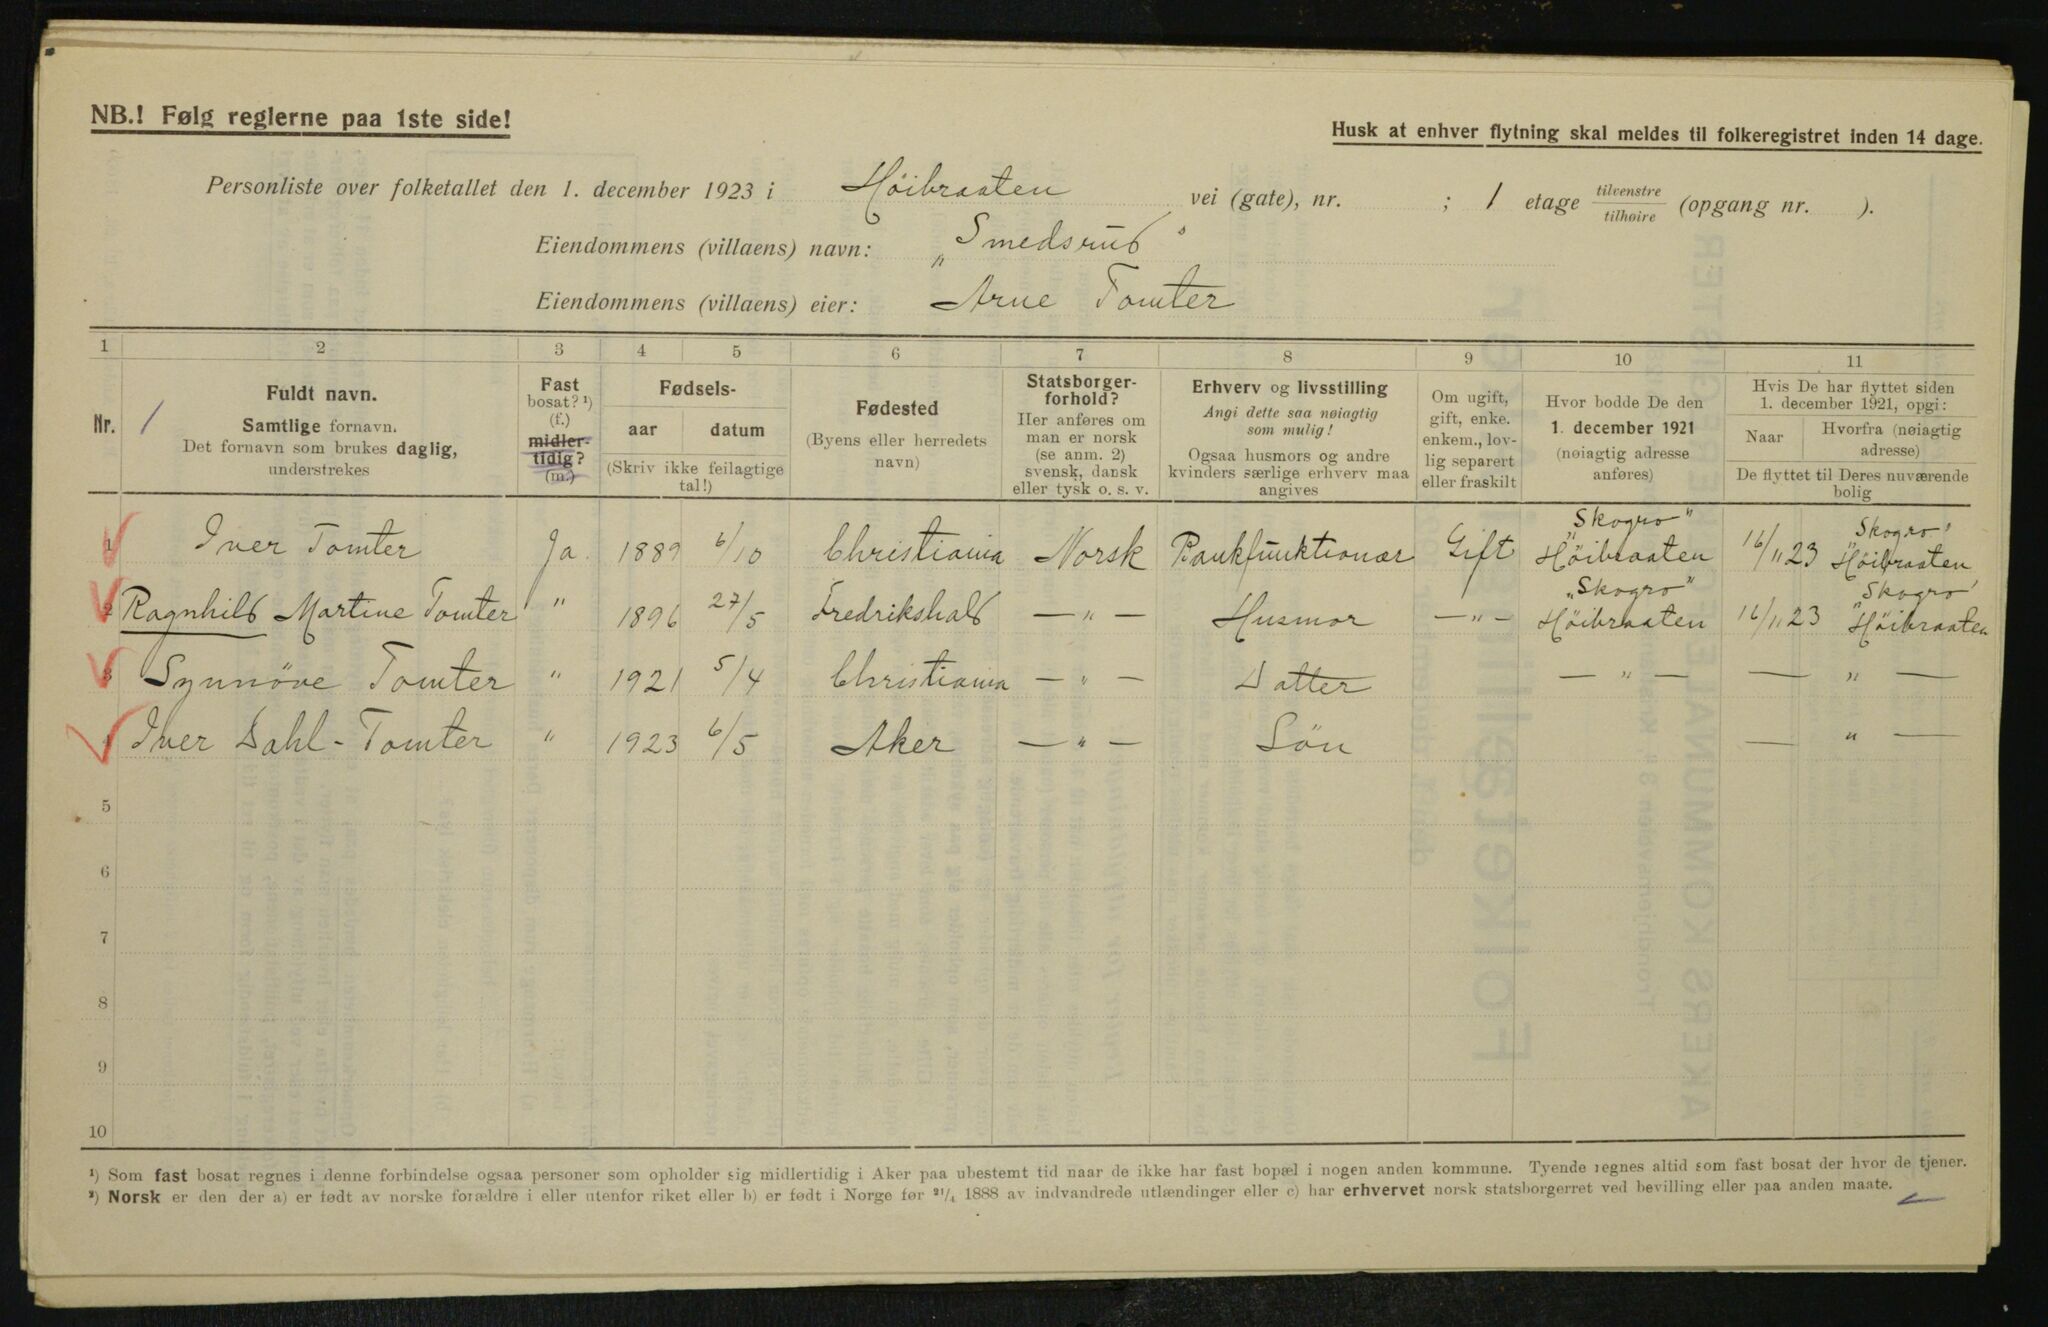 NB.! Følg reglerne paa 1ste side!
Husk at enhver flytning skal meldes til folkeregistret inden 14 dage.
Personliste over folketallet den 1. december 1923 i Høibraaten vei (gate), nr. ; 1 etage tilvenstre tilhøire (opgang nr. ).
Eiendommens (villaens) navn: „Smedsrud"
Eiendommens (villaens) eier: Arne Tomter
1 2 3 4 5 6 7 8 9 10 11
Nr.
1
Fuldt navn.
Samtlige fornavn.
Det fornavn som brukes daglig,
understrekes
Fast
bosat? ¹)
(f.)
midler-
tidig?
(m.)
Fødsels-
aar datum
(Skriv ikke feilagtige
tal!)
Fødested
(Byens eller herredets
navn)
Statsborger-
forhold?
Her anføres om
man er norsk
(se anm. 2)
svensk, dansk
eller tysk o. s. v.
Erhverv og livsstilling
Angi dette saa nøiagtig
som mulig!
Ogsaa husmors og andre
kvinders særlige erhverv maa
angives
Om ugift,
gift, enke.
enkem., lov-
lig separert
eller fraskilt
Hvor bodde De den
1. december 1921
(nøiagtig adresse
anføres)
Hvis De har flyttet siden
1. december 1921, opgi:
Naar Hvorfra (nøiagtig
adresse)
De flyttet til Deres nuværende
bolig
„Skogro" „Skogro"
1 Iver Tomter Ja. 1889 6/10 Christiania Norsk Bankfunktionær Gift Høibraaten 16/11 23 Høibraaten
„Skogro" „Skogro"
2 Ragnhild Martine Tomter " 1896 27/5 Fredrikshald — " — Husmor — " — Høibraaten 16/11 23 Høibraaten
3 Synnöve Tomter " 1921 5/4 Christiania — " — Datter — " — — " —
4 Iver Dahl-Tomter " 1923 6/5 Aker — " — Sön — " —
5
6
7
8
9
10
¹) Som fast bosat regnes i denne forbindelse ogsaa personer som opholder sig midlertidig i Aker paa ubestemt tid naar de ikke har fast bopæl i nogen anden kommune. Tyende regnes altid som fast bosat der hvor de tjener.
²) Norsk er den der a) er født av norske forældre i eller utenfor riket eller b) er født i Norge før 21/4 1888 av indvandrede utlændinger eller c) har erhvervet norsk statsborgerret ved bevilling eller paa anden maate.